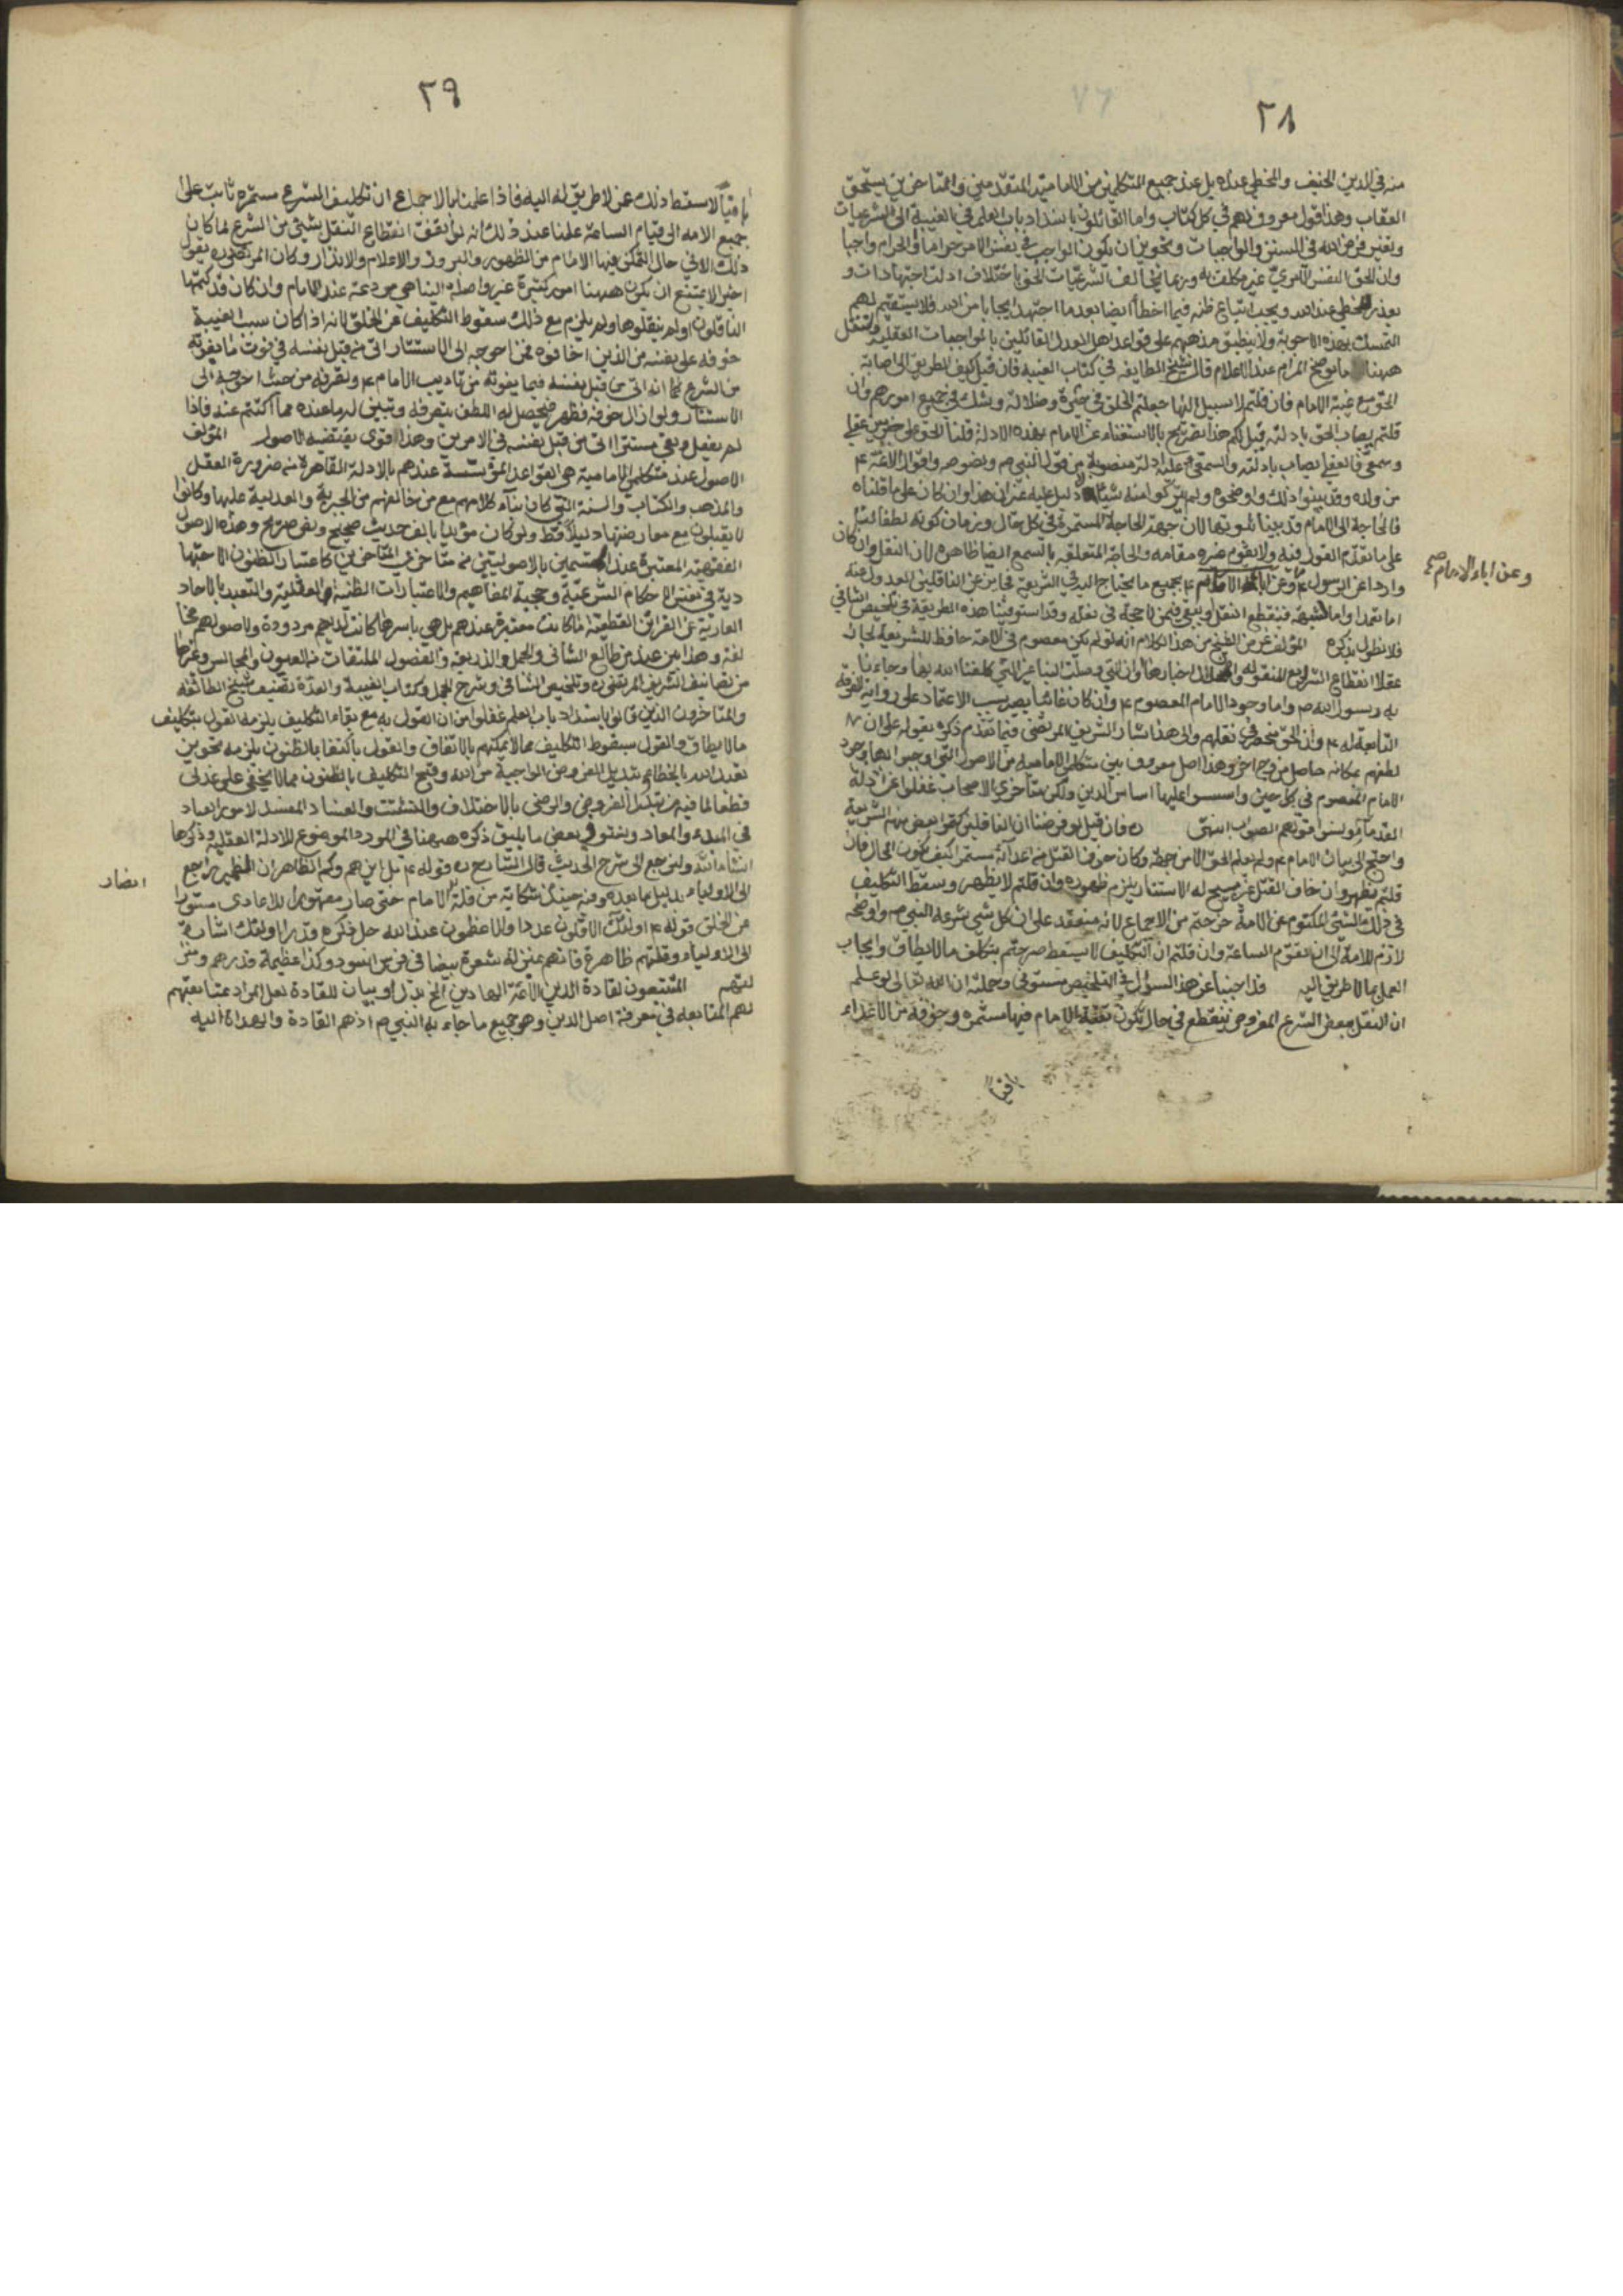 ٢٨
منه في الدين الحنيف والمخطي عنده بل عند جميع المتكلمين من الامامية المتقدمين والمتاخرين يستحق
العقاب وهذا قول معروف لهم في كل كتاب واما القائلون بانسداد باب العلم في الغيبة الى الشرعيات
وتغير فرض الله في السنن والواجبات وتجويز ان يكون الواجب في نفس الامر حراما او الحرام واجبا
وان الحق النفس الامري غير مكلف به وربما يخالف الشرعيات الحق باختلاف ادلة اجتهادات و
يعذر المخطي عند الله ويجب اتباع ظنه فيما اخطأ ايضا بعد ما اجتهد ايجابا من الله فلا يستقيم لهم
التمسك بهذه الاجوبة ولا ينطبق مذهبهم على قواعد اهل العدل القائلين بالواجبات العقلية ولننقل
ههنا ما يوضح المرام عند الاعلام قال شيخ الطايفه في كتاب الغيبة فان قيل كيف الطريق الى اصابة
الحق مع غيبة الامام فان قلتم لا سبيل اليها جعلتم الخلق في حيرة وضلالة وشك في جميع امورهم وان
قلتم يصاب الحق بادلته قيل لكم هذا تصريح بالاستغناء عن الامام بهذه الادلة قلنا الحق على ضربين عقلي
وسمعي فالعقلي يصاب بادلته والسمعي عليه ادلة منصوبة من قول النبي ص ونصوصه واقوال الائمة ع
من ولده وقد بينوا ذلك واوضحوه ولم يتركوا منه شيئا لا دليل عليه غير ان هذا وان كان على ما قلناه
فالحاجة الى الامام قد بينا ثبوتها لان جهة الحاجة المستمرة في كل حال وزمان كونه لطفا لنا
على ما تقدم القول فيه ولا يقوم غيره مقامه والحاجة المتعلقة بالسمع ايضا ظاهرة لان النقل وان كان
واردا عن الرسول ص وعن اباء الامام ع بجميع ما يحتاج اليه في الشريعة فجايز عن الناقلين العدول عنه
وعن اباء الامام ع صح
اما تعمدا واما لشبهة فينقطع النقل او يبقى فيمن لا حجة في نقله وقد استوفينا هذه الطريقة في تلخيص الشافي
فلا نطول بذكره المؤلف غرض الشيخ من هذا الكلام انه لو لم يكن معصوم في الامة حافظ للشريعة لجاز
عقلا انقطاع الشرايع المنقولة
به رسول الله ص واما وجود الامام المعصوم ع وان كان غائبا يصير سبب الاعتماد على رواية الفرقة
التابعة له ع وان الحق منحصر في نقلهم والى هذا اشار الشريف المرتضى فيما تقدم ذكره بقوله على ان
لطفهم بمكانه حاصل من وجه اخر وهذا اصل معروف بين متكلمي الامامية من الاصول التي اوجبوا بها وجود
الامام المعصوم في كل حين واسسوا عليها اساس الدين ولكن متأخري الاصحاب غفلوا عن ادلة
القدماء ونسوا قولهم الصواب انتهى فان قيل لو فرضنا ان الناقلين كتموا بعض منهم الشريعة
واحتيج الى بيان الامام ع ولم يعلم الحق الا من جهته وكان خوف القتل من اعدائه مستمرا كيف يكون الحال فان
قلتم يظهر وان خاف القتل فيجب ان خوف القتل غير مبيح له الاستتار يلزم ظهوره وان قلتم لا يظهر وسقط التكليف
في ذلك الشئ المكتوم عن الامة خرجتم من الاجماع لانه منعقد على ان كل شئ شرعه النبي ص واوضحه
لازم للامة الى ان تقوم الساعة وان قلتم ان التكليف لا يسقط صرحتم بتكليف ما لا يطاق وايجاب
العمل بما لا طريق اليه قد اجبنا عن هذا السؤال في التلخيص مستوفى وجملته ان الله تعالى لو علم
ان النقل ببعض الشرع المفروض ينقطع في حال تكون تقية الامام فيها مستمرة وخوفه من الاعداء
باقيا
٢٩
باقيا لاسقط ذلك عمن لا طريق له اليه فاذا علمنا بالاجماع ان تكليف الشرع مستمر ثابت على
جميع الامة الى قيام الساعة علمنا عند ذلك انه لو اتفق انقطاع النقل بشئ من الشرع لما كان
ذلك الا في حال يتمكن فيها الامام من الظهور والبروز والاعلام والانذار وكان المرتضى ره يقول
اخيرا لا يمتنع ان يكون ههنا امور كثيرة غير واصلة الينا هي مودعة عند الامام وان كان قد كتمها
الناقلون ولم ينقلوها ولم يلزم مع ذلك سقوط التكليف عن الخلق لانه اذا كان سبب الغيبة
خوفه على نفسه من الذين اخافوه فمن احوجه الى الاستتار اتى من قبل نفسه في فوت ما يفوته
من الشرع كما انه اتى من قبل نفسه فيما يفوته من تاديب الامام ع وتصرفه من حيث احوجه الى
الاستتار ولو ازال خوفه لظهر فيحصل له اللطف بتصرفه وتبين له ما عنده مما اكتتم عنه فاذا
لم يفعل وبقي مستترا اتى من قبل نفسه في الامرين وهذا قوي يقتضيه الاصول المؤلف
الاصول عند متكلمي الامامية هي القواعد المؤسسة عندهم بالادلة القاهرة من ضرورة العقل
والمذهب والكتاب والسنة التي كان بناء كلامهم مع من خالفهم من الجبرية والعدلية عليها وكانوا
لا يقبلون مع معارضتها دليلا قط ولو كان مؤيدا بالف حديث صحيح ونص صريح وهذه الاصول
الفقهية المعتبرة عند المتسمين بالاصوليين من متأخري المتاخرين كاعتبار الظنون الاجتها
دية في نفس الاحكام الشرعية وحجية المفاهيم والاعتبارات الظنية العقلية والتعبد بالاحاد
العارية عن القرائن القطعية ما كانت معتبرة عندهم بل هي باسرها كانت لديهم مردودة ولاصولهم مخا
لفة وهذا بين عند من طالع الشافي والجمل والذريعة والفصول الملتقات من العيون والمجالس وغيرها
من تصانيف الشريف المرتضى ره وتلخيص الشافي وشرح الجمل وكتاب الغيبة والعدة تصنيف شيخ الطائفه
والمتاخرون الذين قالوا بانسداد باب العلم غفلوا من ان القول به مع بقاء التكليف يلزمه القول بتكليف
ما لا يطاق والقول بسقوط التكليف مما لا يمكنهم بالاتفاق والقول باكتفا بالظنون يلزمه تجويز
تعبد الله بالخطا وتبديل الفروض الواجبة من الله وقبح التكليف بالظنون مما لا يخفى على عدلي
قطعا لما فيه من تبدل الفروض والرضى بالاختلاف والتشتت والفساد المفسد لامور العباد
في المبدء والمعاد ونفتو في بعض ما يليق ذكره ههنا في المورد الموضوع للادلة العقلية وذكرها
انشاء الله ولنرجع الى شرح الحديث قال الشارح ره قوله ع بل اين هم وكم الظاهر ان الضمير راجع
ايضا
الى الاولياء بدليل ما بعده وفيه حينئذ شكاية من قلة الامام حتى صار مقهورا للاعادي مستورا
عن الخلق قوله ع اولئك الاقلون عددا والاعظمون عند الله جل ذكره قدرا اولئك اشارة
الى الاولياء وقلتهم ظاهرة فانهم بمنزلة شعرة بيضا في فرس اسود وكذا عظيمة قدرهم ومنز
لتهم المتبعون لقادة الدين الائمة الهادين الخ بدل او بيان للقادة لعل المراد بمتابعتهم
لهم المتابعه في معرفة اصل الدين وهو جميع ما جاء به النبي ص اذ هم القادة والهداة اليه